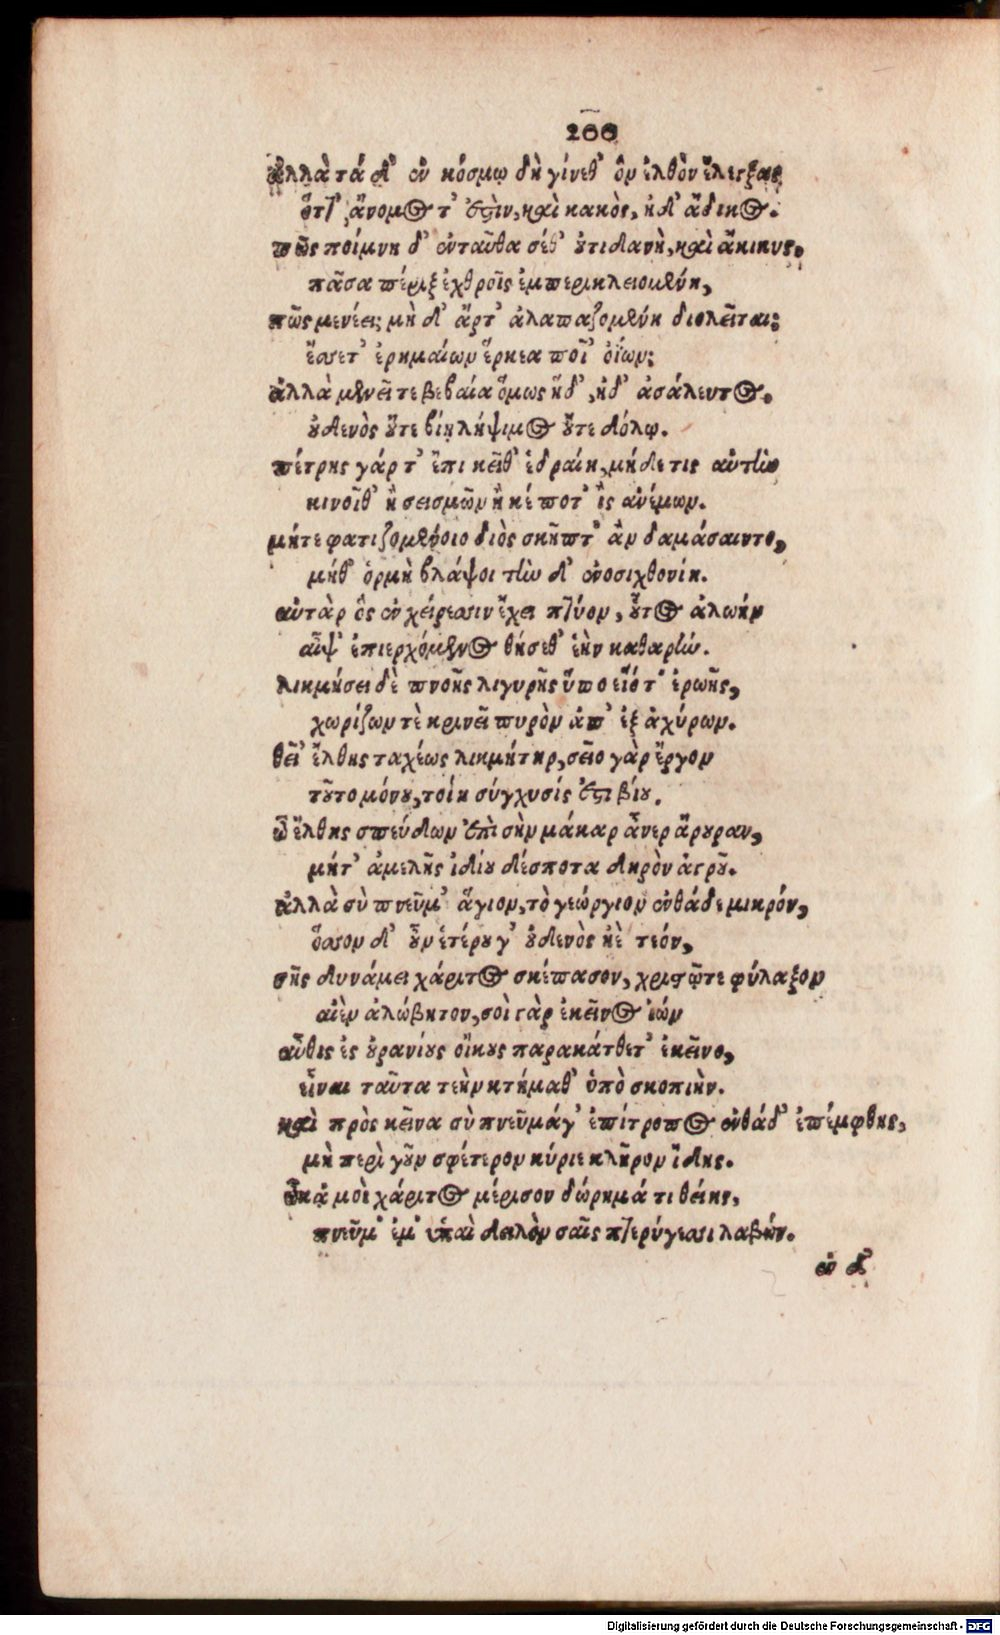 200
ἀλλὰ τά δ' ἐν κόσμῳ δὴ γίνεθ' ὃν ἐλθὸν ἔλεγξας
ὅττ' ἄνομος τ' ἐστὶν, καὶ κακὸς, ἠδ' ἄδικος.
πῶς ποίμνη δ' ἐνταῦθα σέθ' οὐτιδανὴ, καὶ ἄκικυς,
πᾶσα πέριξ ἐχθροῖς ἐμπερικλειομένη,
πῶς μενέει; μὴ δ' ἄρτ' ἀλαπαζομένη διολεῖται;
ἔσσετ' ἐρημαίων ἕρκεα ποῖ' ὀΐων;
ἀλλὰ μενεῖ τε βεβαία ὅμως ἥδ', ἠδ' ἀσάλευτος.
οὐδενὸς οὔτε βίῃ λήψιμος οὔτε δόλῳ.
πέτρης γάρ τ' ἔπι κεῖθ' ἑδραίη, μήδε τις αὐτὴν
κινοῖθ' ἢ σεισμῶν ἢ κέ ποτ' ἲς ἀνέμων.
μήτε φατιζομένοιο διὸς σκῆπτ' ἂν δαμάσαιντο,
μήθ' ὁρμὴ βλάψοι τὴν δ' ἐνοσιχθονίη.
αὐτὰρ ὃς ἐν χείρεσσιν ἔχει πτύον, οὗτος ἀλωὴν
αἶψ' ἐπιερχόμενος θήσεθ' ἑὴν καθαρήν.
λικμήσει δὲ πνοῆς λιγυρῆς ὕπο εἷό τ' ἐρωῆς,
χωρίζων τὲ κρινεῖ πυρὸν ἀπ' ἐξ ἀχύρων.
θεῖ' ἔλθης ταχέως λικμήτηρ, σεῖο γὰρ ἔργον
τοῦτο μόνου, τοίη σύγχυσίς ἐστι βίου.
ὢ ἔλθης σπεύδων ἐπὶ σὴν μάκαρ ἆνερ ἄρουραν,
μήτ' ἀμελῆς ἰδίου δέσποτα δηρὸν ἀγροῦ.
ἀλλὰ σὺ πνεῦμ' ἅγιον, τὸ γεώργιον ἐνθάδε μικρόν,
ὅσσον δ' οὖν ἑτέρου γ' οὐδενὸς ἠὲ τεόν,
σῆς δυνάμει χάριτος σκέπασον, χριστῷ τε φύλαξον
αἰὲν ἀλώβητον, σοὶ γὰρ ἐκεῖνος ἰών
αὖθις ἐς οὐρανίους οἴκους παρακάτθετ' ἐκεῖνο,
εἶναι ταῦτα τεὴν κτήμαθ' ὑπὸ σκοπιὴν.
καὶ πρὸς κεῖνα σὺ πνεῦμά γ' ἐπίτροπος ἐνθάδ' ἐπέμφθης,
μὴ περὶ γοῦν σφέτερον κύριε κλῆρον ἴδης.
ὦκά μοὶ χάριτος μέρισον δώρημά τι θείης,
πνεῦμ' ἐμ' ὑπαὶ δειλὸν σαῖς πτερύγεσσι λαβών.
ἐν δ'
Digitalisierung gefördert durch die Deutsche Forschungsgemeinschaft - DFG